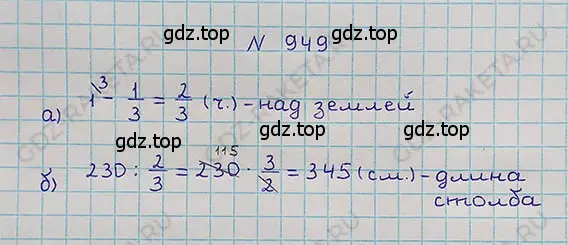 gdz.top gdz.top
№ 949
а) 1 ³ - 1/3 = 2/3 (ч.) - над землей
gdz.top gdz.top
б) 230 : 2/3 = 230 ¹¹⁵ · 3/2 = 345 (см.) - длина
столба
gdz.top gdz.top
GDZ-RAKETA.RU